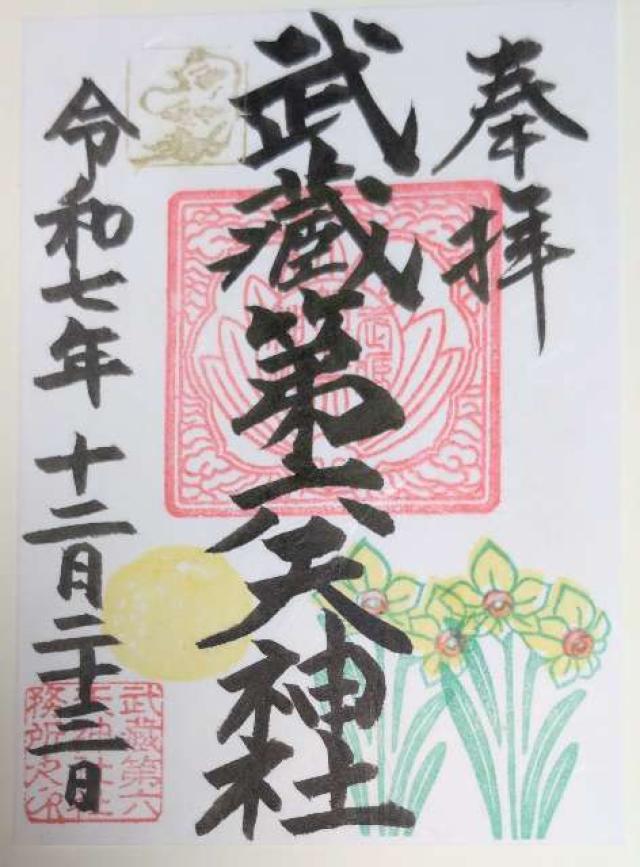 奉拝
武蔵第六天神社
令和七年 十二月二十三日
武蔵第六
天神社
務所之印